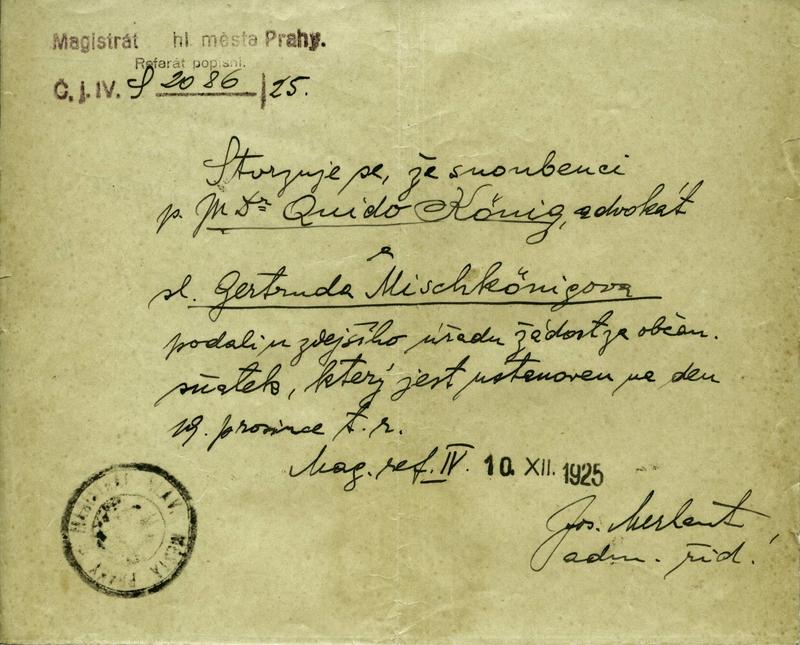 Magistrát hl. města Prahy.
Referát popisní.
Č. j. IV. S 2086 / 25.
Stvrzuje se, že snoubenci
p. JUDr Quido König, advokát
a
sl. Gertruda Mischkönigova
podali u zdejšího úřadu žádost za občan.
sňatek, který jest ustanoven na den
19. prosince t. r.
Mag. ref. IV. 10. XII. 1925
Jos.
adm. řid.
MAGISTRÁT HLAV. MĚSTA PRAHY